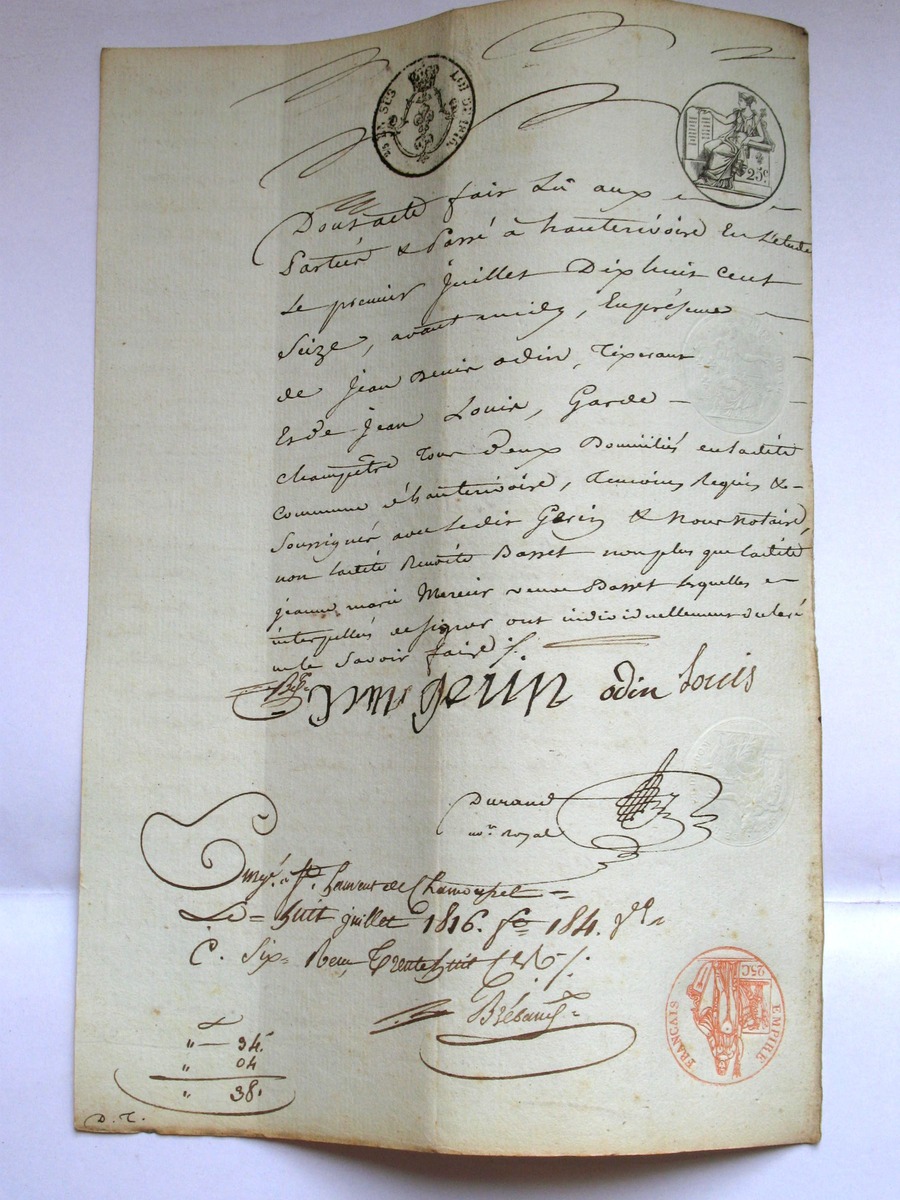 EN SUS
LOI DE 1816.
25c.
Dont acte fait Lu aux
Parties & Passé à hauterivoire En L'étude
Le premier Juillet Dix huit cent
Seize, avant midy, En présence
de Jean Denis odin, Tixerant
Et de Jean Louis, Garde
champêtre Tous d'eux Domiciliés en ladite
commune d'hauterivoire, Temoins Requis &
Soussignés avec Ledit Gerin & Nous notaire,
non ladite Benoite Basset non plus que ladite
jeanne marie Mercier veuve Basset Lesquelles
interpellés de signer ont individuellement declaré
ne le Savoir faire ./.
gerin odin Louis
Durand
no.re royal
Enregé. à St. Laurent de Chamousset
Le huit juillet 1816. fo 184.
C. Six Reçu Trente huit
" 34.
" 04
" 38.
D. T.
EMPIRE
FRANCAIS
25C